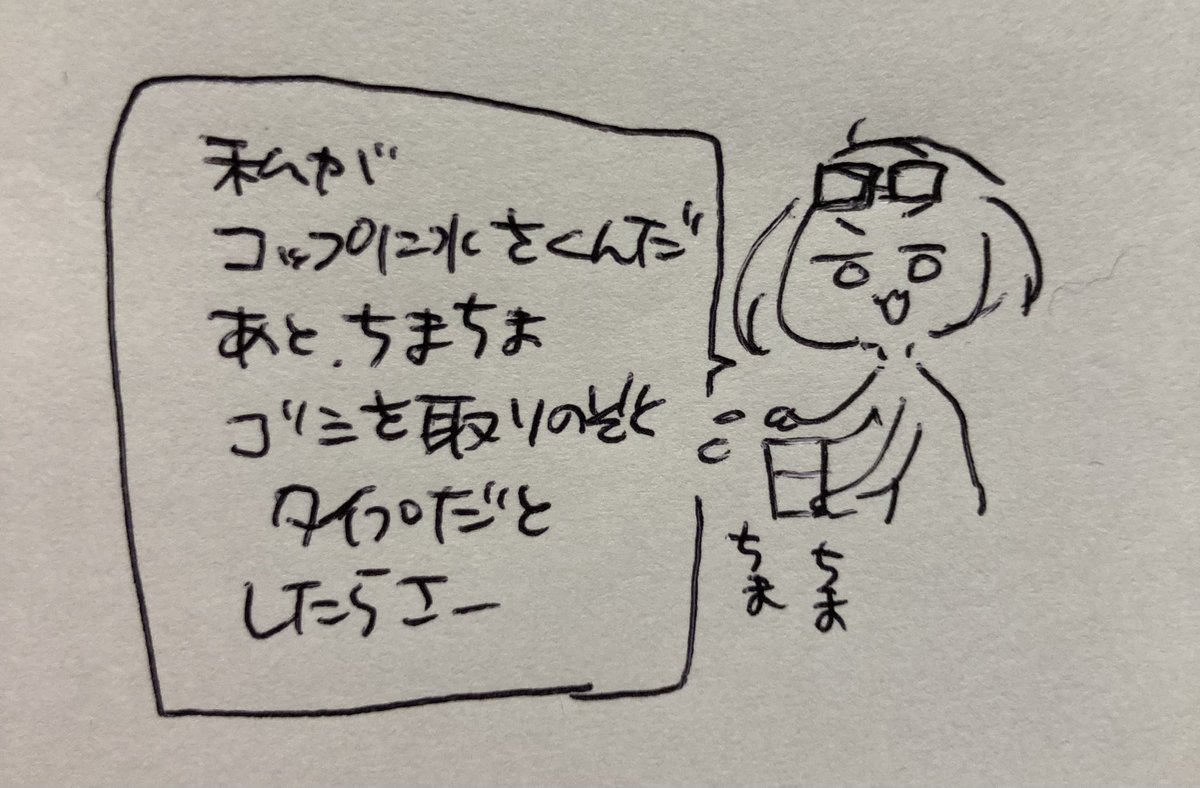 私が
コップに水をくんだ
あと、ちまちま
ゴミを取りのぞく
タイプだと
したらさー
ちま
ちま